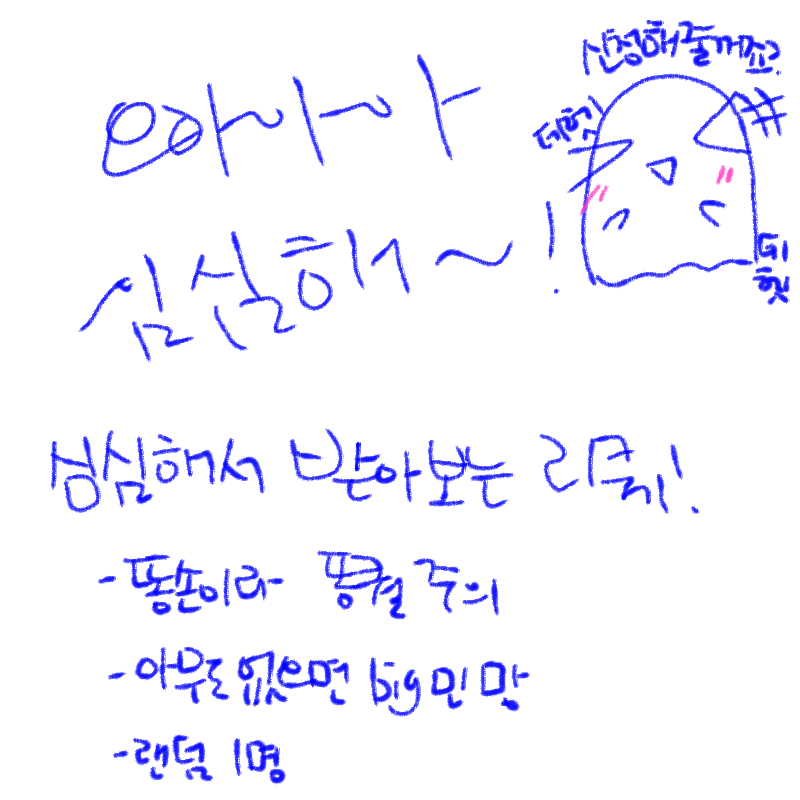 신청해줄꺼죠?
으아아아
데헷!
심심해~!
데헷
심심해서 받아보는 리퀘!
- 똥손이라 똥퀄 주의
- 아무도 없으면 big민망
- 랜덤 1명